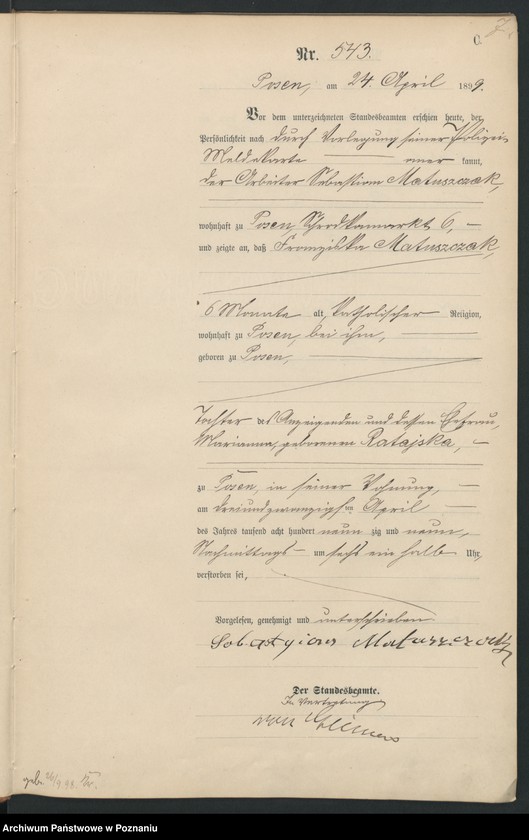 C. 7.
Nr. 543.
Posen, am 24. April 1899.
Vor dem unterzeichneten Standesbeamten erschien heute, der
Persönlichkeit nach durch Vorlegung seiner Polizei
Meldekarte aner kannt,
der Arbeiter Sebastian Matuszczak,
wohnhaft zu Posen, Schrodkamarkt 6,
und zeigte an, daß Franziska Matuszczak,
6 Monate alt, katholischer Religion,
wohnhaft zu Posen, bei ihm,
geboren zu Posen,
Tochter des Anzeigenden und dessen Ehefrau,
Marianna, geborenen Ratajska,
zu Posen, in seiner Wohnung,
am dreiundzwanzigsten April
des Jahres tausend acht hundert neun zig und neun,
Nachmittags um sechs ein halb Uhr,
verstorben sei,
Vorgelesen, genehmigt und unterschrieben
Sobastyian Matuszczak
Der Standesbeamte.
In Vertretung
geb. 26/9.98.
Archiwum Państwowe w Poznaniu